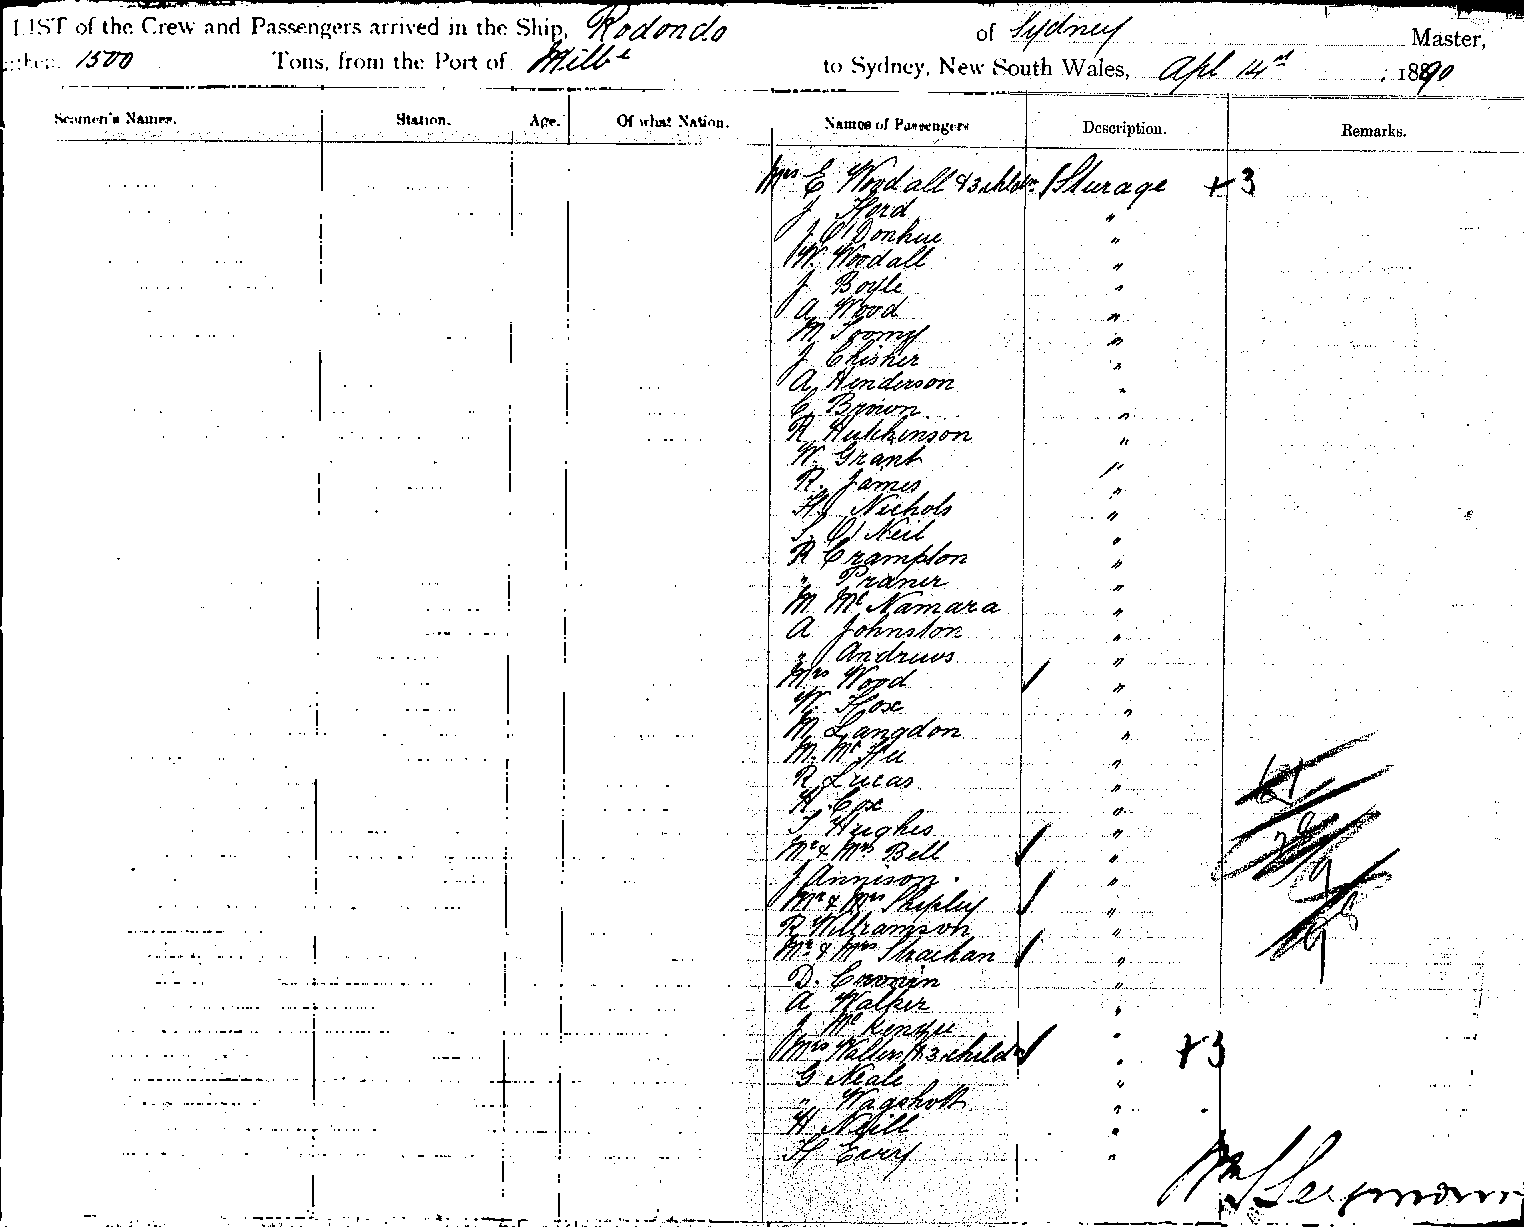 LIST of the Crew and Passengers arrived in the Ship, Rodondo of Sydney Master,
1500 Tons, from the Port of Melbe to Sydney, New South Wales, Apl 14th 1890
Seamen's Names. Station. Age. Of what Nation. Names of Passengers Description. Remarks.
Mrs E Woodall & 3 childn Sturage +3
J Ford "
J O'Donhue "
W. Woodall "
J Boyle "
A Wood "
M Toomy "
J Chisher "
A Henderson "
C Brown "
R Hutchinson "
W. Grant "
R. James "
H. Nichols "
S. O'Neil "
R Crampton "
" Praner "
M McNamara "
A Johnston "
" Andrews "
Mrs Wood "
W. Fox "
M Langdon "
M. McFee "
R Lucas "
H Cox "
T Hughes "
Mr & Mrs Bell "
J Annison. "
Mr & Mrs Shipley "
R Williamson "
Mr & Mrs Strachan "
D. Cronin "
A Walker "
J McKendue "
Mrs Wallers & 3 childn " +3
G Neale "
" Wagshott "
H Neill "
H Evry "